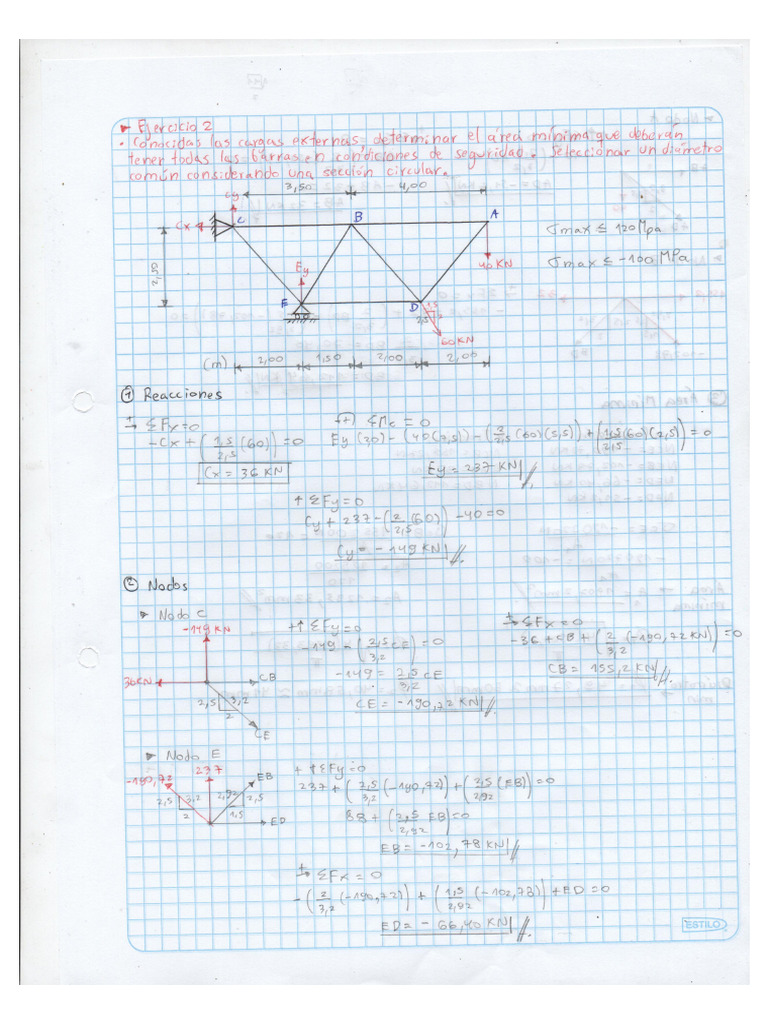 ► Ejercicio 2
• Conocidas las cargas externas, determinar el área mínima que deberán
tener todas las barras en condiciones de seguridad. Seleccionar un diámetro
común considerando una sección circular.
3,50 4,00
Cy
C B A
Cx
σmax ≤ 120 Mpa
40 KN
σmax ≤ -100 MPa
2,50
Ey
E D
1,5
2
2,5
60KN
(m) 2,00 1,50 2,00 2,00
① Reacciones
→+ ΣFx=0
-Cx + (1,5/2,5 (60)) = 0
Cx = 36 KN
↶+ ΣMc = 0
Ey (20) - (40(7,5)) - (2/2,5 (60)(5,5)) + (1,5/2,5 (60)(2,5)) = 0
Ey = 237 KN
+↑ ΣFy=0
Cy + 237 - (2/2,5 (60)) - 40 = 0
Cy = - 149 KN
② Nodos
► Nodo C
-149 KN
36KN
CB
2,5 3,2
2
CE
+↑ ΣFy=0
-149 - (2,5/3,2 CE) = 0
-149 = 2,5/3,2 CE
CE = -190,72 KN
→+ ΣFx=0
-36 + CB + (2/3,2 (-190,72 KN)) = 0
CB = 155,2 KN
► Nodo E
-190,72 237 EB
2,5 3,2 2,92 2,5
2 1,5 ED
+↑ ΣFy=0
237 + (2,5/3,2 (-190,72)) + (2,5/2,92 (EB)) = 0
88 + (2,5/2,92 EB) = 0
EB = -102,78 KN
→+ ΣFx = 0
-(2/3,2 (-190,72)) + (1,5/2,92 (-102,78)) + ED = 0
ED = - 66,40 KN
ESTILO